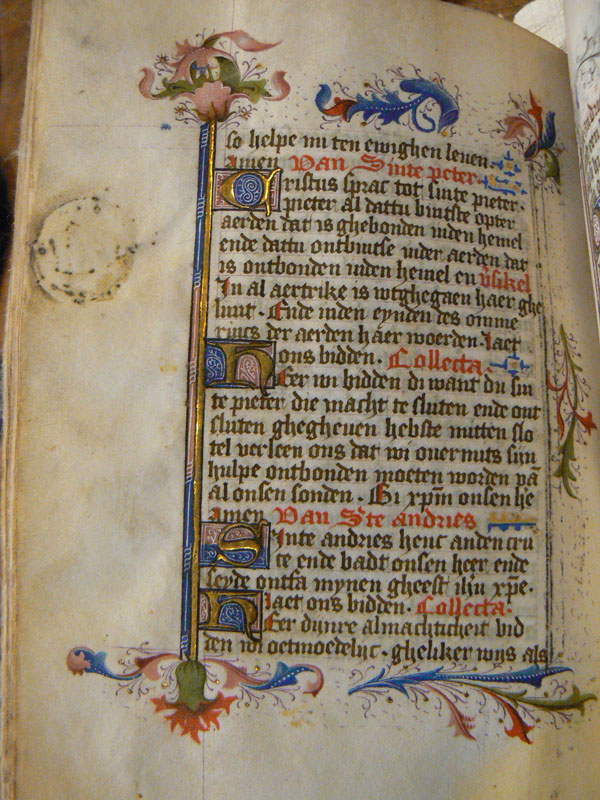 so helpe mi ten ewighen leuen.
Amen Van Sinte peter
Cristus sprac tot sinte pieter.
pieter al dattu bintste opter
aerden dat is ghebonden inden hemel
ende dattu ontbintse inder aerden dat
is ontbonden inden hemel en v̄sikel
In al aertrike is wtghegaen haer ghe
luut. Ende inden eynden des omme
rincs der aerden haer woerden. Laet
ons bidden. Collecta.
Heer wi bidden di want du sin
te pieter die macht te sluten ende ont
sluten ghegheuen hebste mitten slo
tel verleen ons dat wi ouermits sijn
hulpe ontbonden moeten worden vā
al onsen sonden. Bi xp̄m onsen he
Amen Van Ste andries
Sinte andries henc anden cru
te ende badt onsen heer ende
seyde ontfa mynen gheest ih̄u xp̄e.
Laet ons bidden. Collecta.
Heer dijnre almachticheit bid
den wi oetmoedelyc. gheliker wijs als